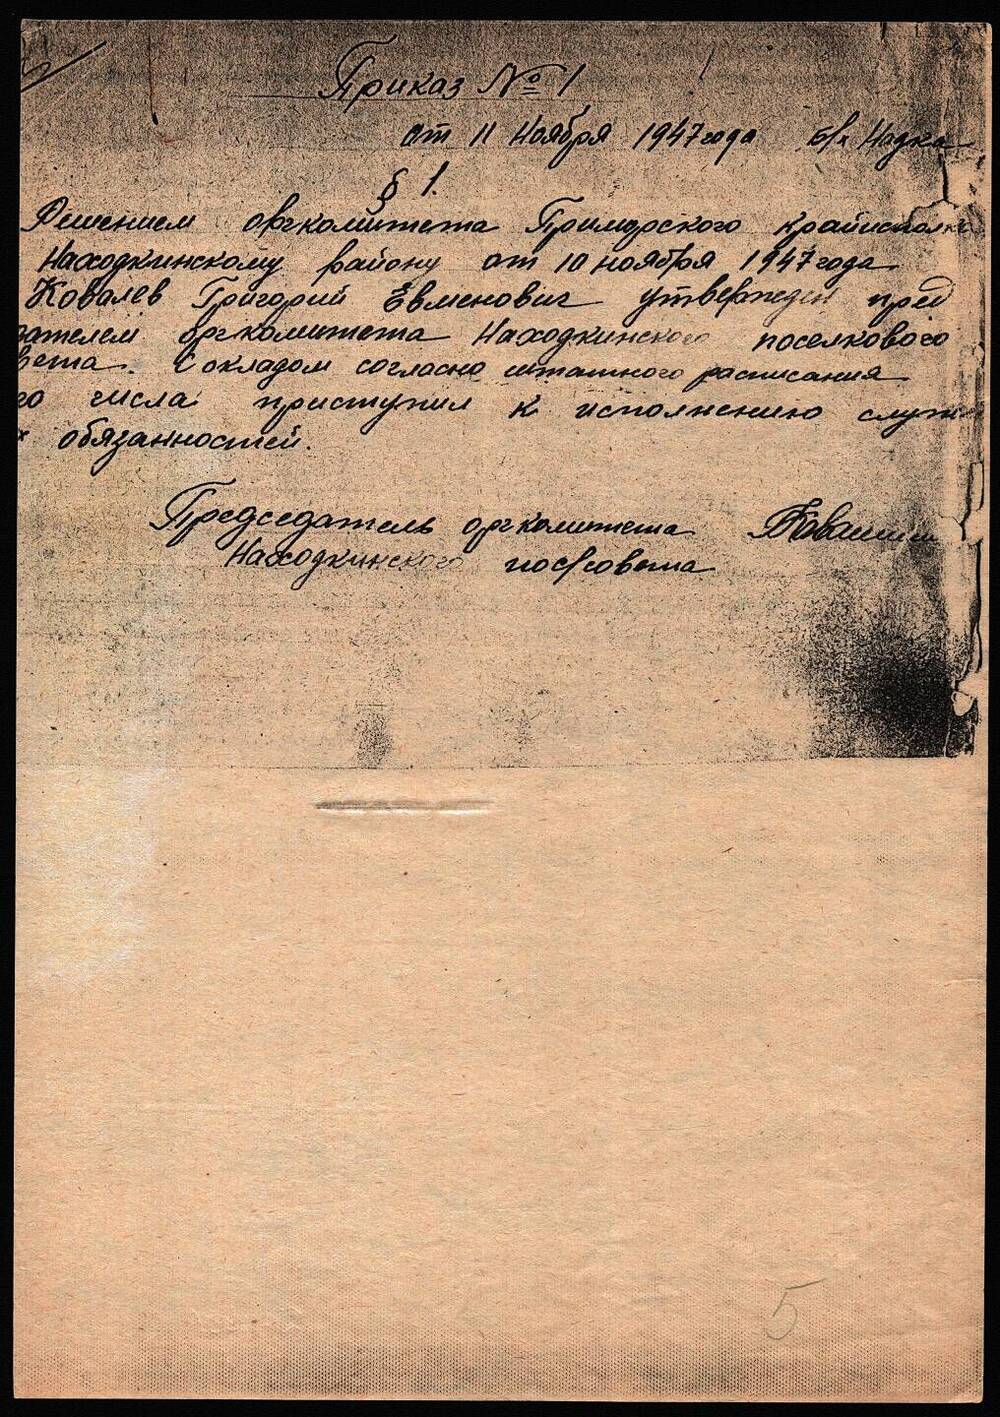 Приказ № 1
от 11 Ноября 1947 года б/х Н-дка
§ 1.
Решением оргкомитета Приморского крайисполк
Находкинскому району от 10 ноября 1947 года
Ковалев Григорий Евменович утвержден пред
дателем оргкомитета Находкинского поселкового
вета. С окладом согласно штатного расписания
го числа приступил к исполнению служ
х обязанностей.
Председатель оргкомитета
Находкинского пос/совета
5